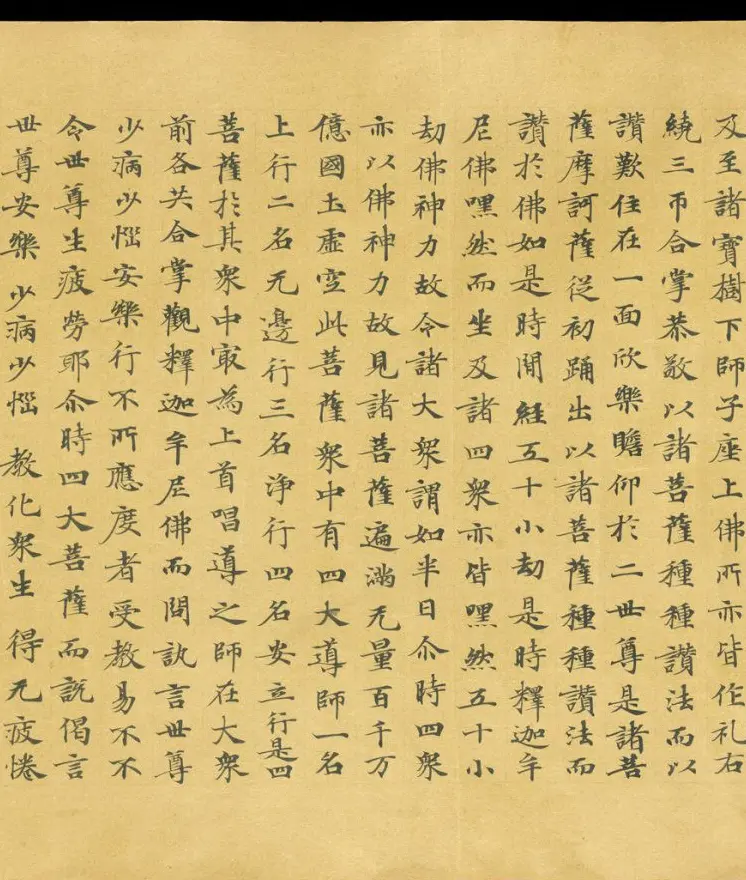 及至諸寶樹下師子座上佛所亦皆作礼右
繞三帀合掌恭敬以諸菩薩種種讃法而以
讃歎住在一面欣樂瞻仰於二世尊是諸菩
薩摩訶薩從初踊出以諸菩薩種種讃法而
讃於佛如是時間經五十小劫是時釋迦牟
尼佛嘿然而坐及諸四衆亦皆嘿然五十小
劫佛神力故令諸大衆謂如半日尒時四衆
亦以佛神力故見諸菩薩遍滿无量百千万
億國土虛空此菩薩衆中有四大導師一名
上行二名无邊行三名淨行四名安立行是四
菩薩於其衆中冣為上首唱導之師在大衆
前各共合掌觀釋迦牟尼佛而問訊言世尊
少病少惱安樂行不所應度者受教易不不
令世尊生疲勞耶尒時四大菩薩而說偈言
世尊安樂 少病少惱 教化衆生 得无疲惓